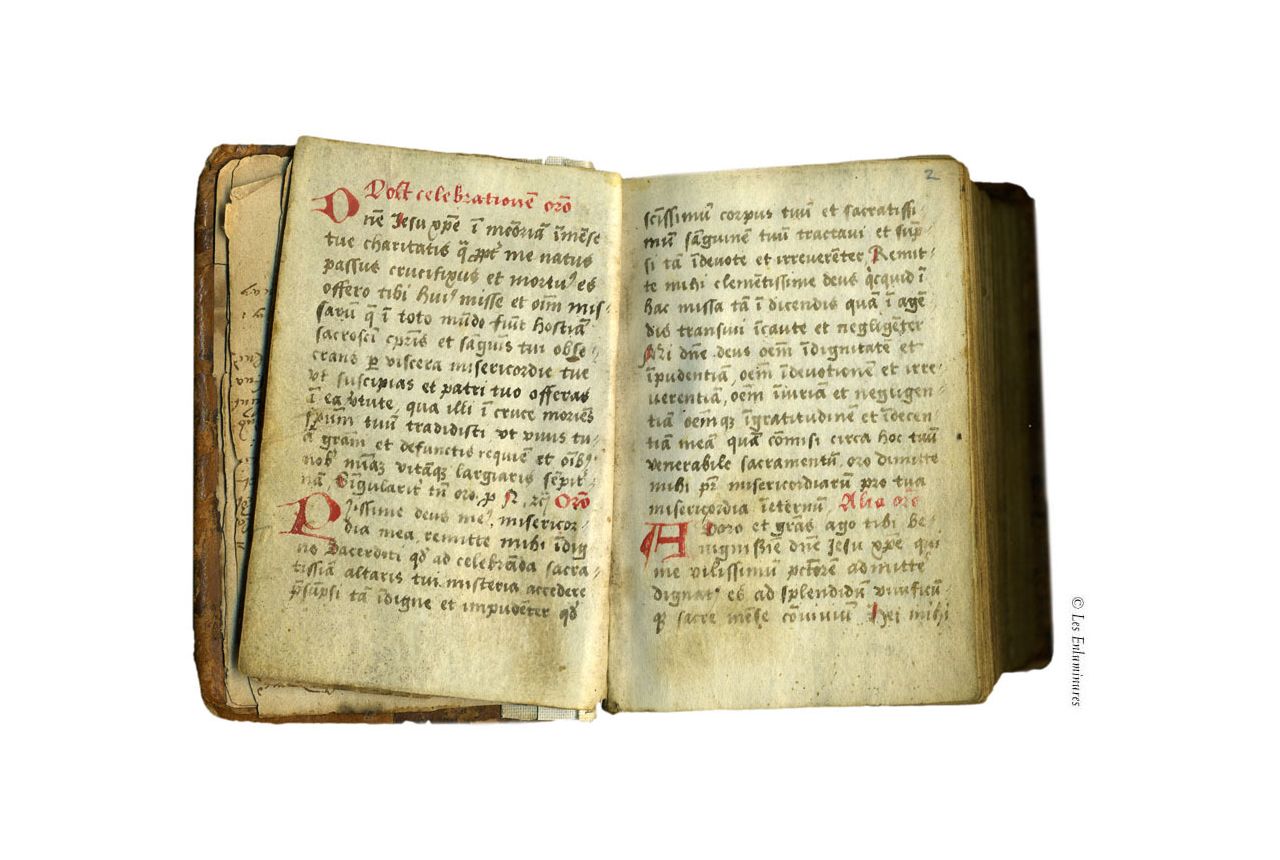 Post celebrationē orō
Dnē Jesu xp̄e ī meōriā īmēse
tue charitatis q̄ ꝓpt̄ me natus
passus crucifixus et mortuꝰ es
offero tibi huiꝰ misse et oīm mis-
sarū q̄ ī toto mūdo fiūt hostiā
sacrosc̄i cp̄ris et sāguīs tui obse-
crans per viscera misericordie tue
vt suscipias et patri tuo offeras
ī ea v̄tute, qua illi ī cruce moriēs
sp̄um tuū tradidisti vt viuis tu-
ā grām et defunctis requiē et oībꝰ
nobꝰ vitāqꝫ largiaris sēpit-
nā. Singularit̄ tn̄ oro, p Oro
Piissime deus meꝰ, misericor-
dia mea, remitte mihi īdig
no Sacerdoti qđ ad celebrāda sacra-
tissīā altaris tui misteria accedere
p̄sūpsi tā īdigne et impudēter qđ
2
sc̄issimū corpus tuū et sacratissi-
mū sāguinē tuū tractavi et sūp-
si tā īdevote et irreverēter, Remit-
te mihi clemētissime deus q̇cquid ī
hac missa tā ī dicendis quā ī agē-
dis transiui īcaute et negligēter
Mi dn̄e deus oem̄ īdignitatē et
īpudentiā, oem̄ īdevotionē et irre-
verentiā, oem̄ īiuriā et negligen-
tiā oem̄qꝫ īgratitudinē et īdecen
tiā meā quā cōmisi circa hoc tuū
venerabile sacramentū, oro dimitte
mihi pr̄ misericordiarū pro tua
misericordia īeternū, Alia oro
Adoro et grās ago tibi be-
nignissīe dn̄e Jesu xp̄e qui
me vilissimū pctōrē admitte
dignatꝰ es ad splendidū viuificū
qꝫ sacre mēse cōviviū, Hei mihi
© Les Enluminures